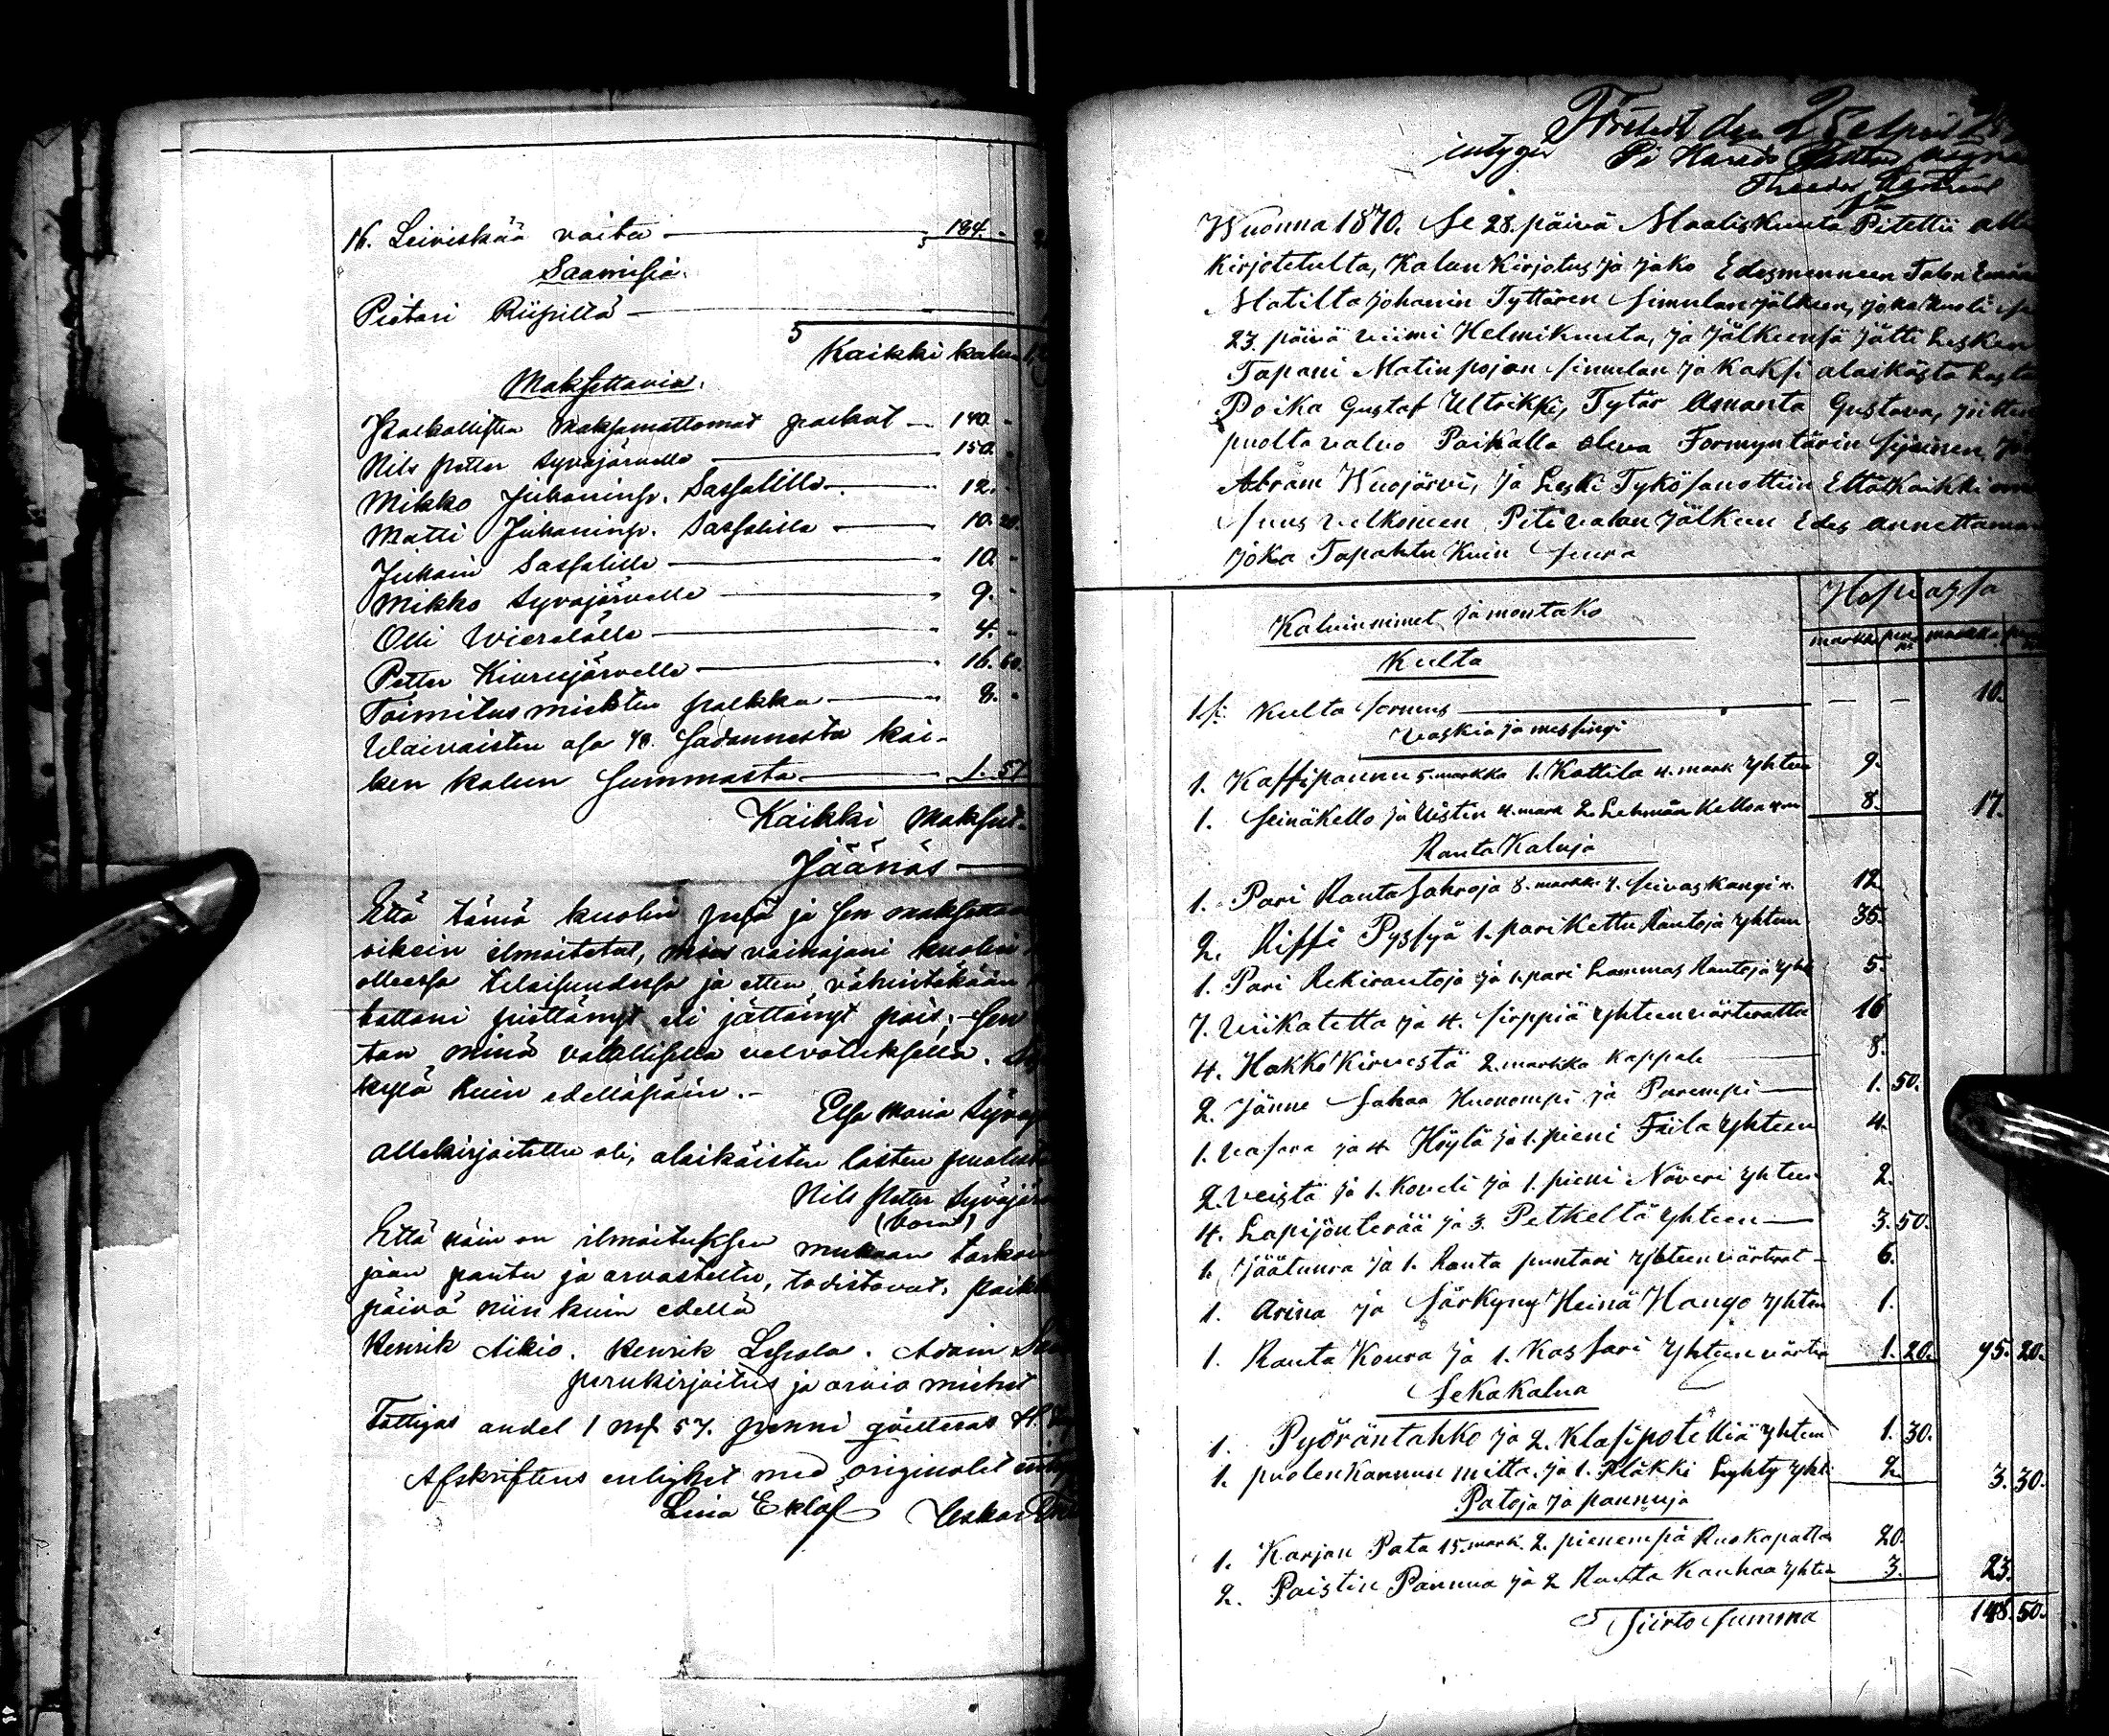 16. Leiviskää voita — 184. -
Saamisia.
Pietari Riipillä —
Kaikki kalun
Maksettavia.
Palkollisten maksamattomat palkat — 140. -
Nils Petter Syväjärvelle — 150. -
Mikko Juhaninp. Sassalille — 12. -
Matti Juhaninp. Sassalille — 10. 20.
Juhani Sassalille — 10. -
Mikko Syväjärvelle — 9. -
Olli Wierelälle — 4. -
Petter Kiurujärvelle — 16. 60.
Toimitus miesten palkka — 8. -
Waivaisten osa sadannesta kai-
ken kalun summasta — 1. 57
Kaikki maksut
Jäänös —
Että tämä kuolin pesä ja sen maksettava
oikein ilmoitetut, vainajani kuolin
ollessa tilaisuudessa ja etten vähintäkään
tottani piettänyt eli jättänyt pois, sen
tan minä valallisella velvotuksella.
kylä kuin edelläpäin. -
Elsa Maria Syväj
Allekirjoitettu oli, alaikäisten lasten puolest
Nils Peter Syväjär
Että näin on ilmoituksen mukaan tarkoin
jaan pantu ja arvosteltu, todistavat. Paikk
päivä niin kuin edellä
Henrik Aikio. Henrik Lepola. Adam
perukirjoitus ja arvio miehet
Fattigas andel 1 mk 57. penni qvitteras
Afskriftens enlighet med originalet intyg
Lina Eklöf Oskar
Företedt den 25 April
intyger På Härads Rättens vägnar
Theodor
Wuonna 1870. Se 28. päivä Maaliskuuta Pitettii alla
kirjotetulta, Kalun Kirjotus ja jako Edesmenneen Talon Emän
Matilta Johanin Tyttären Simulan jälkeen, joka kuoli se
23. päivä viimi Helmikuusta, ja Jälkeensä Jätti Leskan
Tapani Matinpojan Simulan ja Kaksi alaikästa Lasta
Poika Gustaf Ulrikki, Tytär Amanta Gustava, juitten
puolta valvo Paikalla oleva Formyntärin Sijainen,
Abram Wuojärvi, ja Leski Tykö sanottiin Että Kaikki
Suus velkoneen Pitivalan Jälkeen Edes annettaman
joka Tapahtu Kuin Seura
Kaluin nimet, ja montako
Hopiassa
markka pen ni markka
Kulta
1. si Kulta Sormus — — — 10.
Vaskia ja messingi
1. Kaffipannu 5. markka 1. Kattila 4. mark yhteen 9.
1. Seinäkello ja 4. mark 2. Lehmän Kelloa 8. 17.
Rauta Kaluja
1. Pari Rauta Sahroja 8. markka 1. Seivas Kangi 12.
2. Riffi Pyssyä 1. pari Kettu Rautoja yhteen 35.
1. Pari Rekirautoja ja 1. pari Lammas Rautoja yht 5.
7. Viikatetta ja 4. Sirppiä yhteen värteratta 16
4. Hakko Kirvestä 2. markka kappale — 8.
2. Jänne Sahaa Huonompi ja Parempi — 1. 50.
1. Vasara ja 4. Höylä ja 1. pieni Fiila yhteen 4.
2. Veistä ja 1. Koveli ja 1. pieni Näveri yhteen 2.
4. Lapijonterää ja 3. Petkeltä yhteen — 3. 50.
1. Jäätuura ja 1. Rauta puntari yhteen värterat - 6.
1. Arina ja Särkyny Heinä Hango yhten 1.
1. Rauta Koura ja 1. Kassari yhteen värter 1. 20. 95. 20.
Seka Kalua
1. Pyöräntahko ja 2. Klasipotelliä yhteen 1. 30.
1. puolen Kannun mitta. ja 1. Pläkki Lyhty yht 2. 3. 30.
Patoja ja pannuja
1. Karjan Pata 15. mark. 2. pienempä Ruokapatta 20.
2. Paistin Pannua ja 2 Rauta Kauhaa yhten 3. 23.
Siirto Summa 148. 50.